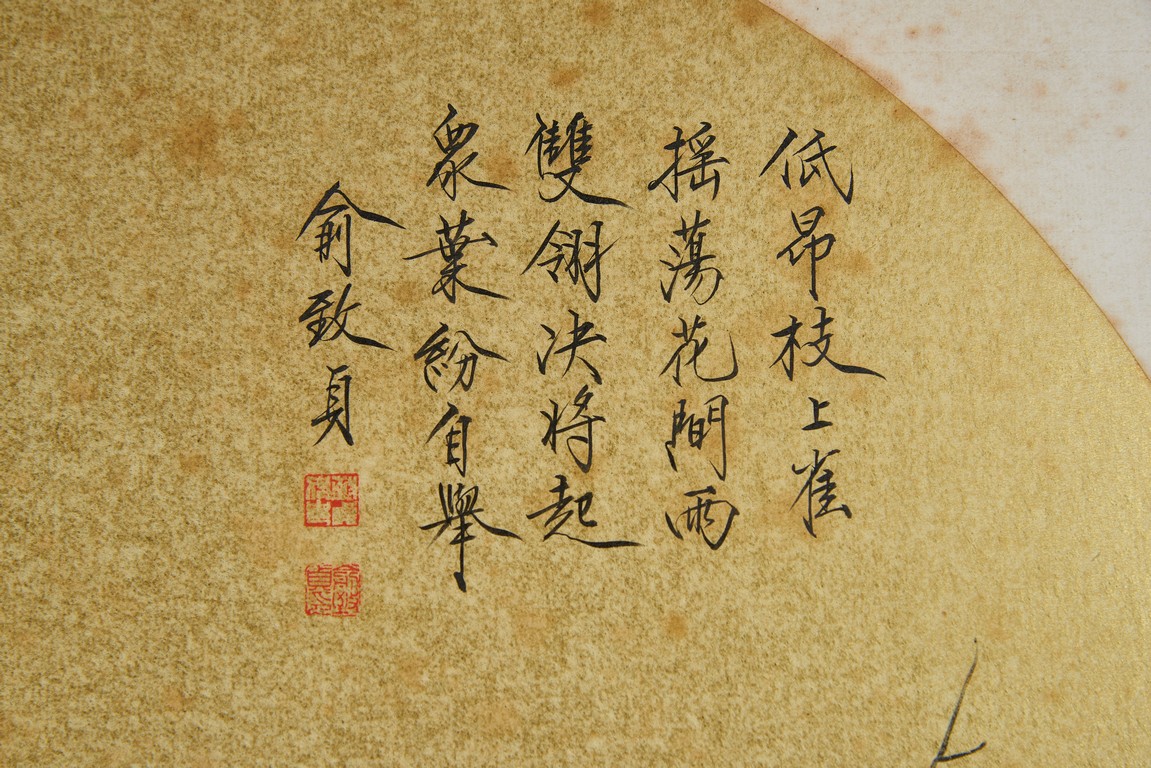 低昂枝上雀
搖蕩花間雨
雙翎決將起
眾葉紛自舉
俞致貞
俞致貞印